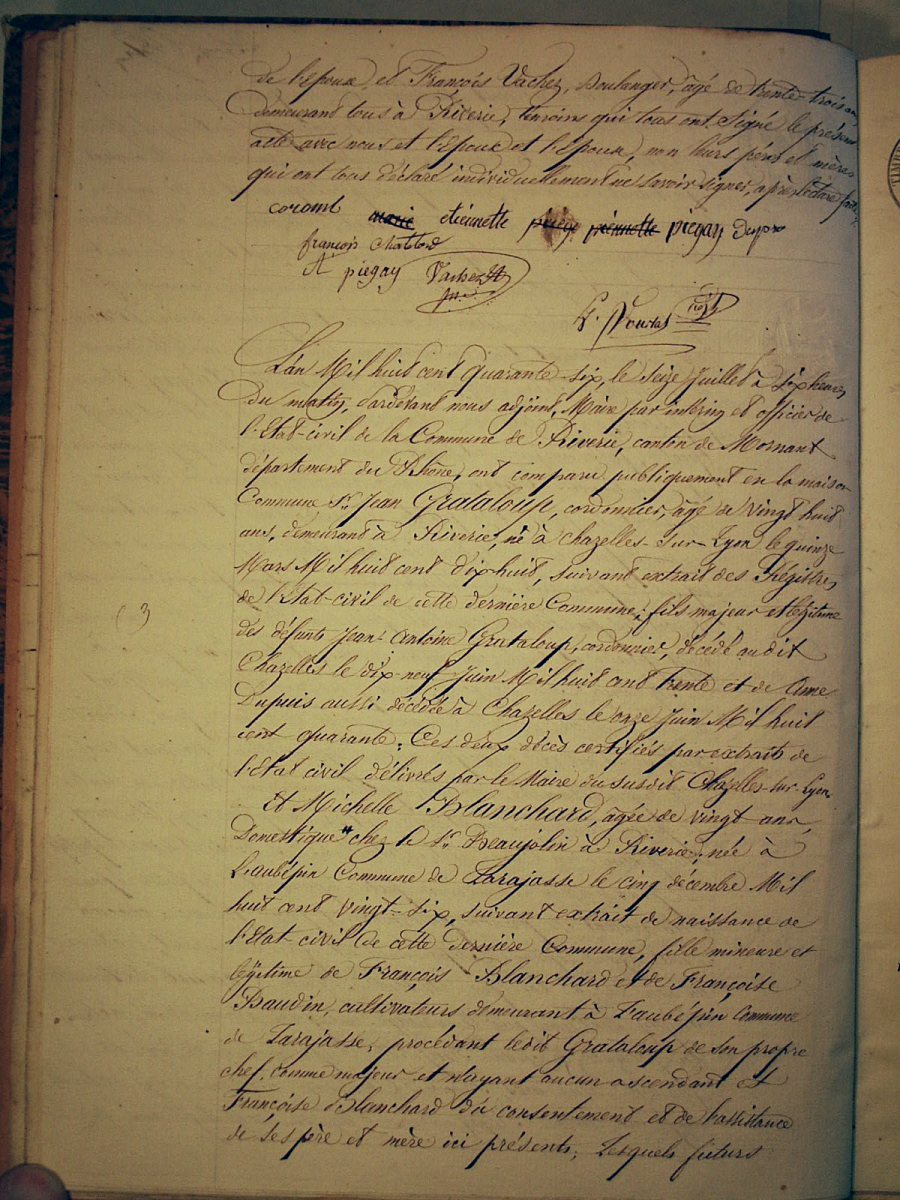 de l'Epoux, et François Vachez, Boulanger, âgé de trente-trois ans,
demeurant tous à Riverie, témoins qui tous ont signé le présent
acte avec nous et l'Epoux et l'Epouse, non leurs pères et mères
qui ont tous déclaré individuellement ne savoir signer, après lecture faite.
coromt marie etiennette piegay
françois chattard
piegay Vachez
L'an Mil huit cent quarante-six, le seize Juillet à six heures
du matin, pardevant nous adjoint, Maire par interim et officier de
l'Etat-civil de la Commune de Riverie, canton de Mornant
département du Rhône, ont comparu publiquement en la maison
Commune Sr. Jean Grataloup, cordonnier, âgé de vingt huit
ans, demeurant à Riverie, né à Chazelles-sur-Lyon le quinze
Mars Mil huit cent dix-huit, suivant extrait des Régistres
de l'Etat-civil de cette dernière Commune; fils majeur et légitime
des défunts Jean-Antoine Grataloup, cordonnier, décédé audit
Chazelles le dix-neuf Juin Mil huit cent trente et de Anne
Dupuis aussi décédée à Chazelles le onze Juin Mil huit
cent quarante; Ces deux décès certifiés par extraits de
l'Etat civil délivrés par le Maire du susdit Chazelles-sur-Lyon.
Et Michelle Blanchard, agée de vingt ans,
Domestique chez le Sr. Beaujolin à Riverie, née à
L'aubépin Commune de Larajasse le cinq décembre Mil
huit cent vingt-six, suivant extrait de naissance de
l'Etat-civil de cette dernière Commune, fille mineure et
légitime de François Blanchard et de Françoise
Baudin, cultivateurs demeurant à L'aubépin Commune
de Larajasse; procédant ledit Grataloup de son propre
chef, comme majeur et n'ayant aucun ascendant et
Françoise Blanchard du consentement et de l'assistance
de ses père et mère ici présents; Lesquels futurs
(3